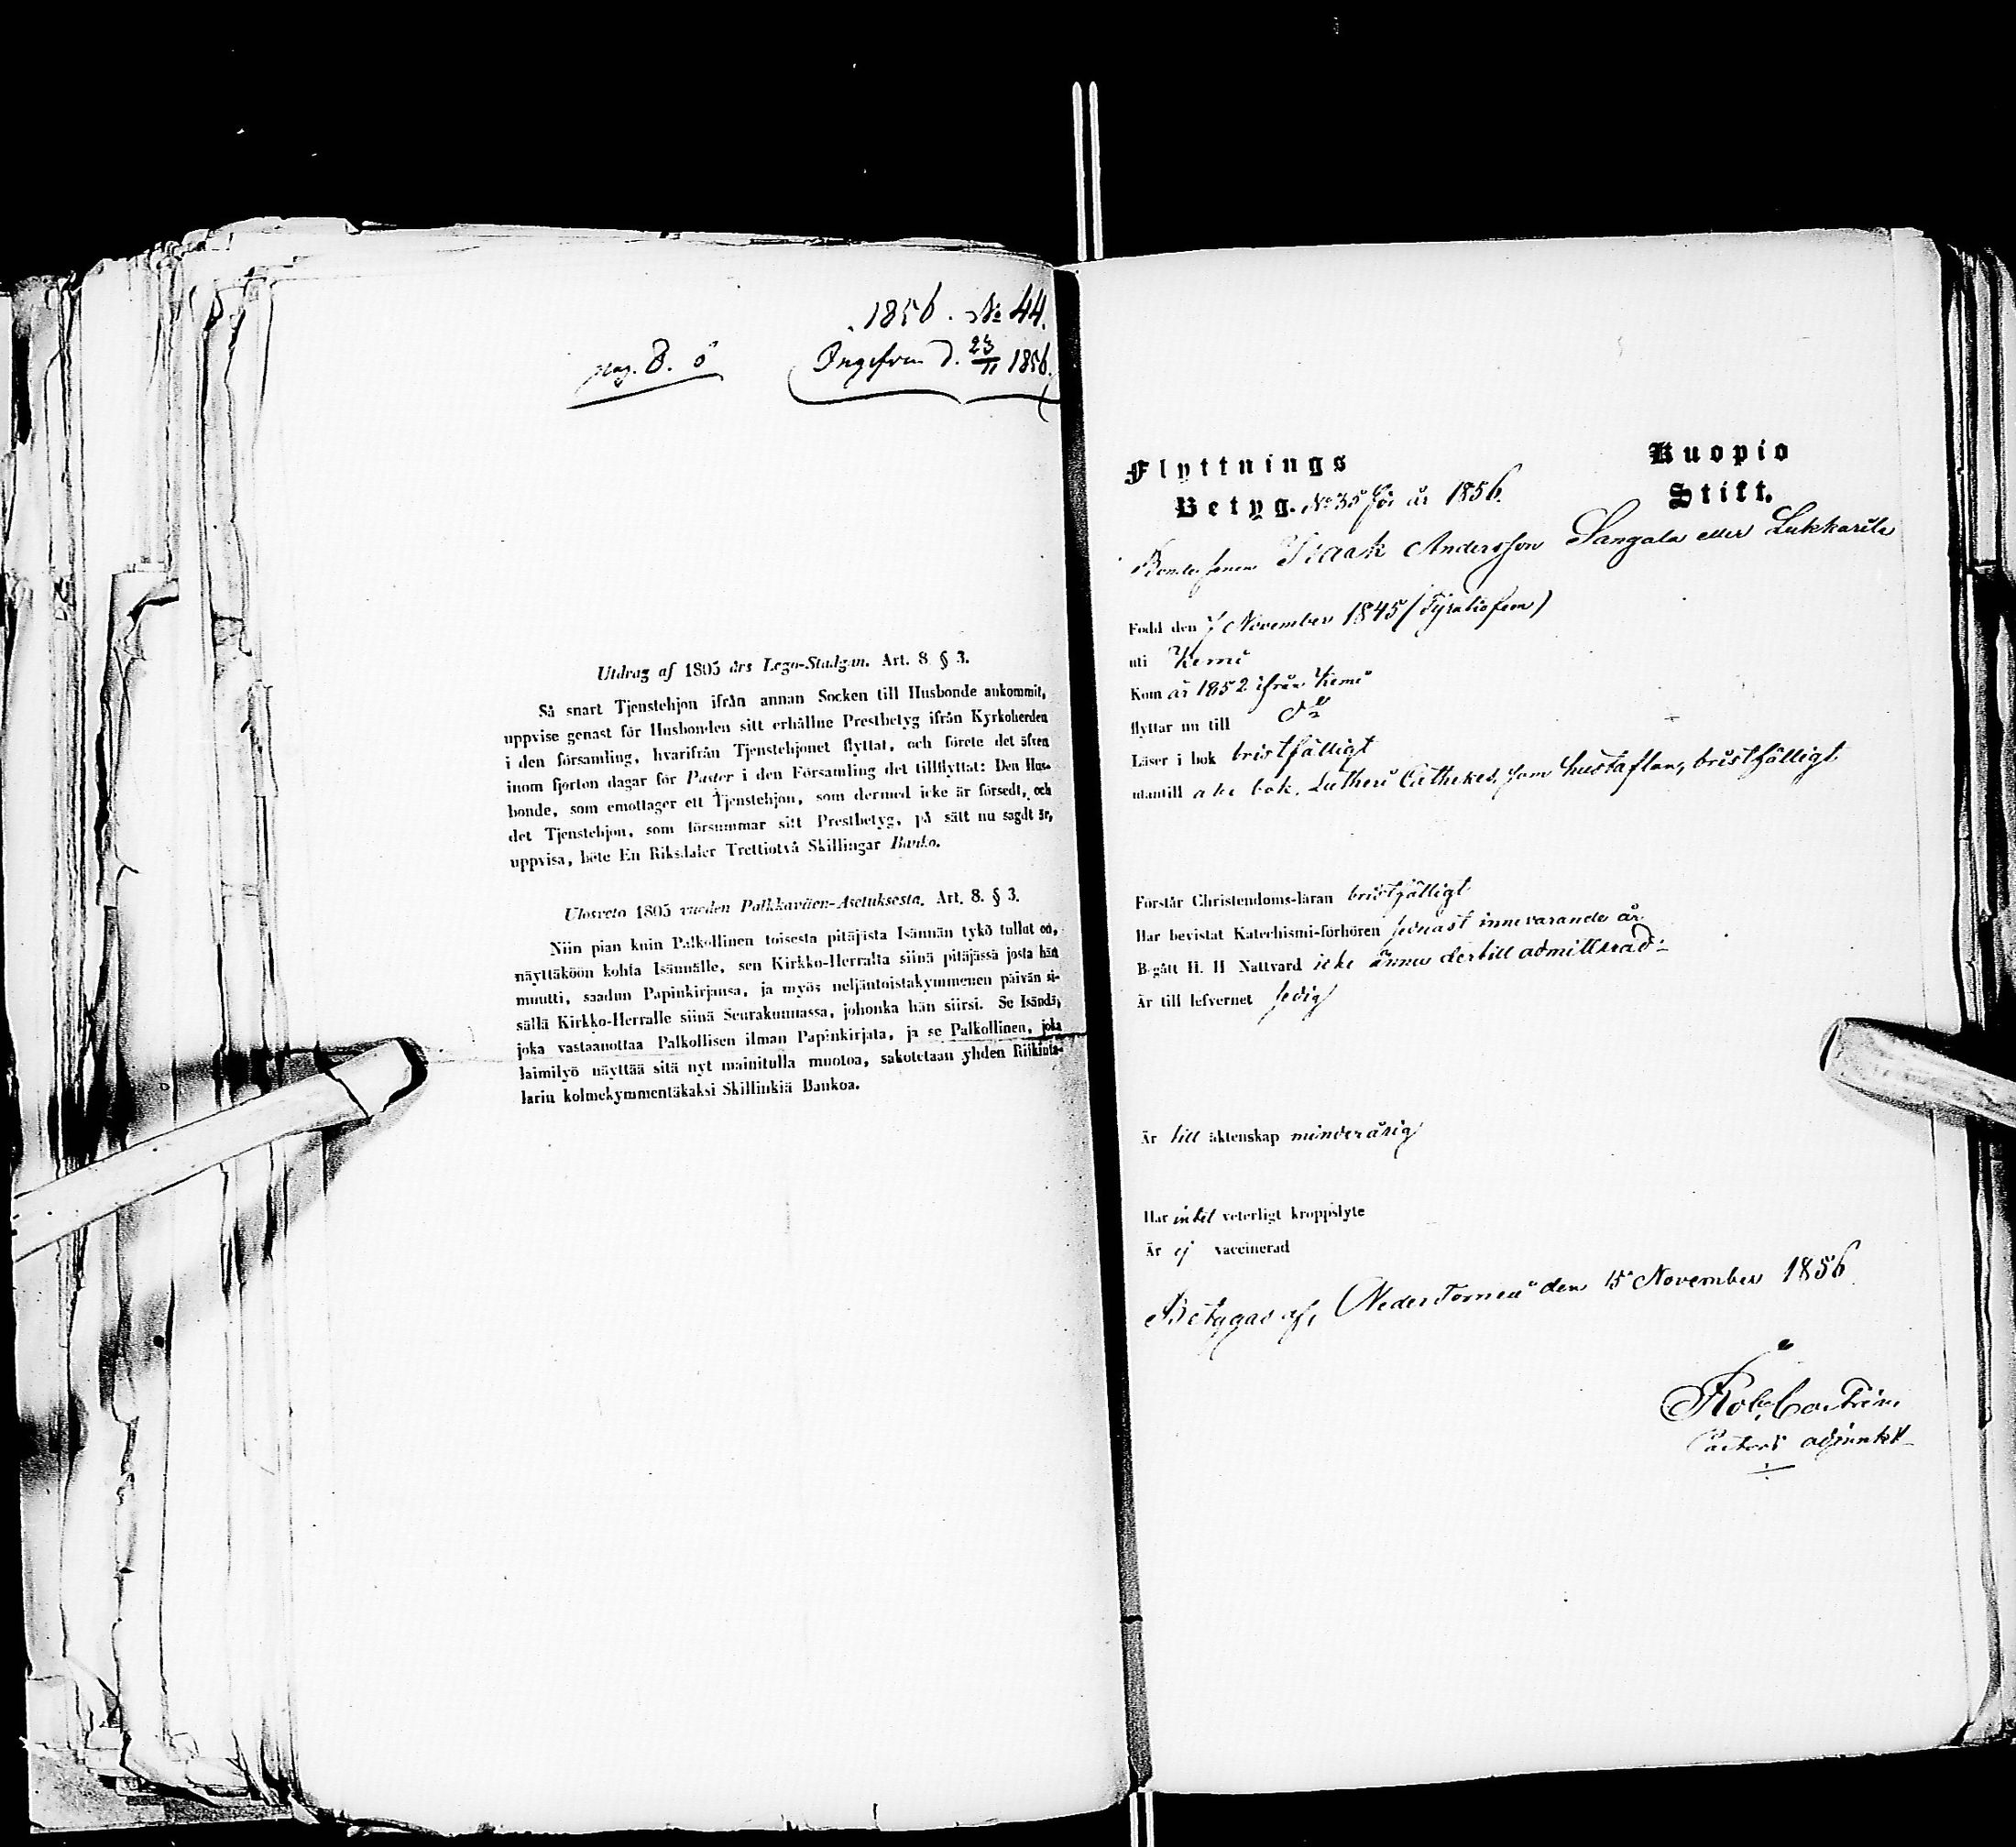 1856. № 44.
pag. 8. ö
Ingifven d. 23/11 1856.
Utdrag af 1805 års Lego-Stadgan. Art. 8 § 3.
Så snart Tjenstehjon ifrån annan Socken till Husbonde ankommit,
uppvise genast för Husbonden sitt erhållne Prestbetyg ifrån Kyrkoherden
i den församling, hvarifrån Tjenstehjonet flyttat, och förete det äfven
inom fjorton dagar för Pastor i den Församling det tillflyttat: Den Hus-
bonde, som emottager ett Tjenstehjon, som dermed icke är försedt, och
det Tjenstehjon, som försummar sitt Prestbetyg, på sätt nu sagdt är,
uppvisa, böte En Riksdaler Trettiotvå Skillingar Banko.
Ulosveto 1805 vuoden Palkkaväen-Asetuksesta. Art. 8. § 3.
Niin pian kuin Palkollinen toisesta pitäjästa Isännän tykö tullut on,
näyttäköön kohta Isännälle, sen Kirkko-Herralta siinä pitäjässä josta hän
muutti, saadun Papinkirjansa, ja myös neljäntoistakymmenen päivän si-
sällä Kirkko-Herralle siinä Seurakunnassa, johonka hän siirsi. Se Isändä,
joka vastaanottaa Palkollisen ilman Papinkirjata, ja se Palkollinen, joka
laimilyö näyttää sitä nyt mainitulla muotoa, sakotetaan yhden Riikinta-
larin kolmekymmentäkaksi Skillinkiä Bankoa.
Flyttnings Kuopio
Betyg. № 35 för år 1856. Stift.
Bondesonen Isaak Andersson Sangala eller Lukkarila
Född den 7 November 1845
uti Kemi
Kom år 1852 ifrån Kemi
flyttar nu till Do
Läser i bok bristfälligt
utantill abc bok, Lutheri Cathekes, som hustaflan, bristfälligt
Förstår Christendoms-läran bristfälligt
Har bevistat Katechismi-förhören sednast innevarande år
Begått H. H Nattvard icke ännu dertill admitterad
Är till lefvernet sedig
Är till äktenskap minderårig
Har intet veterligt kroppslyte
Är ej vaccinerad
Betygas af, Neder Torneå den 15 November 1856
Rob. Castrén
Pastors adjunkt